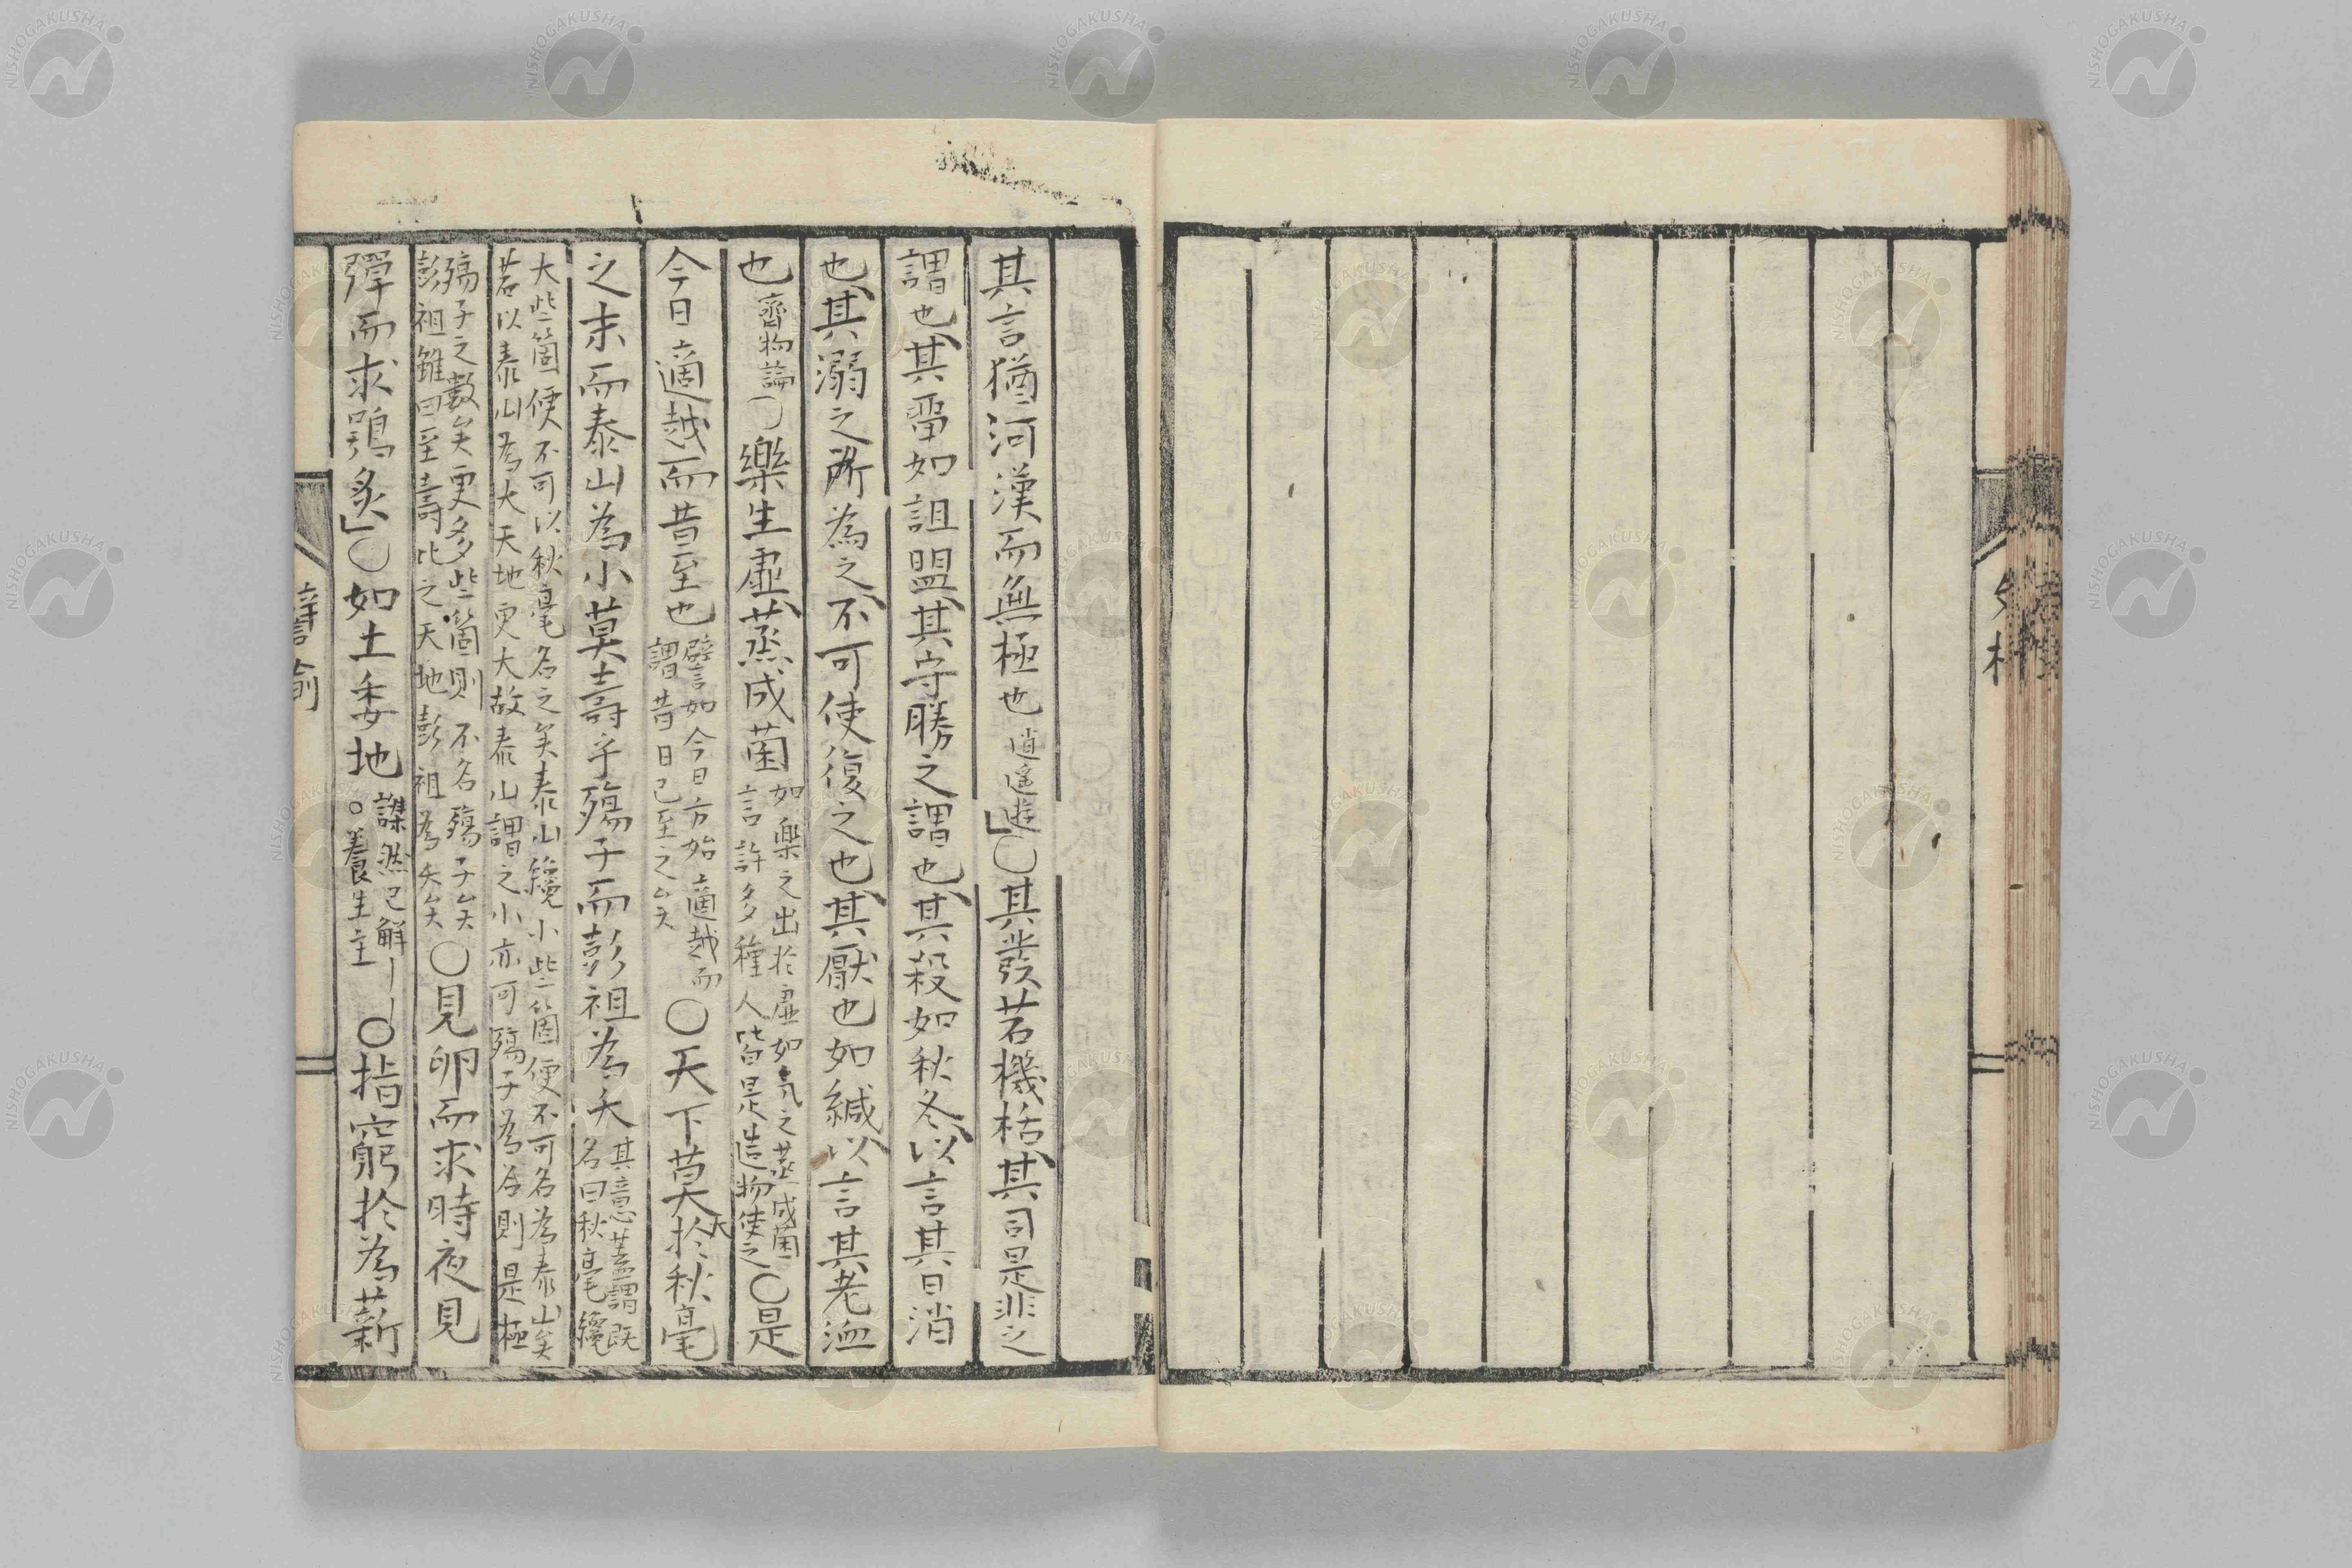 其言猶河漢而無極也逍遥遊」〇其發若機栝其司是非之
謂也其畱如詛盟其守勝之謂也其殺如秋冬以言其日消
也其溺之所為之不可使復之也其厭也如緘以言其老洫
也齊物論〇樂生虛蒸成菌如樂之出於虛如氣之蒸成菌
言許多種人皆是造物使之〇是
今日適越而昔至也譬如今日方始適越而
謂昔日已至之矣〇天下莫大於秋毫
之末而泰山為小莫壽乎殤子而彭祖為夭其意蓋謂既
名曰秋毫纔
大些箇便不可以秋毫名之矣泰山纔小些箇便不可名為泰山矣
若以泰山為大天地更大故泰山謂之小亦可殤子為名則是極
殤子之數矣更多些箇則不名殤子矣
彭祖雖曰至壽比之天地彭祖為夭矣〇見卵而求時夜見
彈而求鴞炙」〇如土委地謋然已解
〇養生主〇指窮於為薪
譬喻
NISHOGAKUSHA